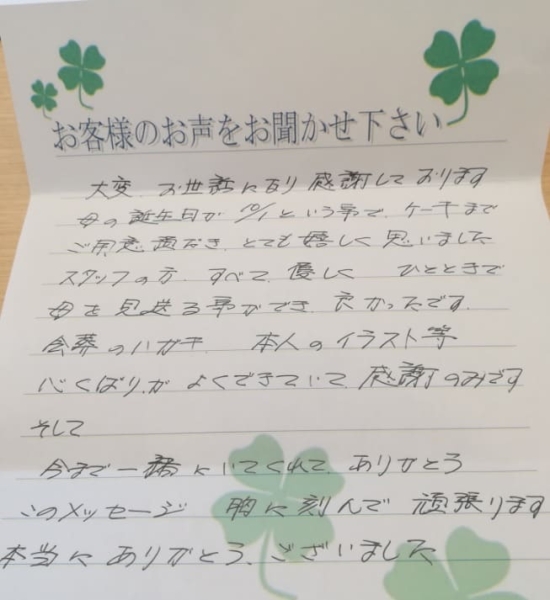 お客様のお声をお聞かせ下さい
大変 お世話になり 感謝しております
母の誕生日が 10/1という事で、ケーキまで
ご用意頂だき、とても嬉しく思いました
スタッフの方、すべて、優しく ひとときで
母を見送る事ができ、良かったです。
会葬のハガキ 本人のイラスト等
心くばりが よくできていて、感謝のみです
そして
今まで一緒にいてくれて、ありがとう
このメッセージ 胸に刻んで 頑張ります
本当に ありがとう、ございました